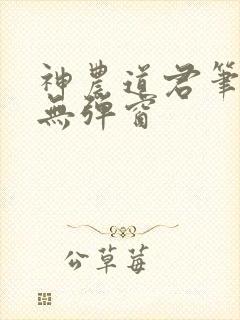 神農道君筆
無彈窗
公草莓